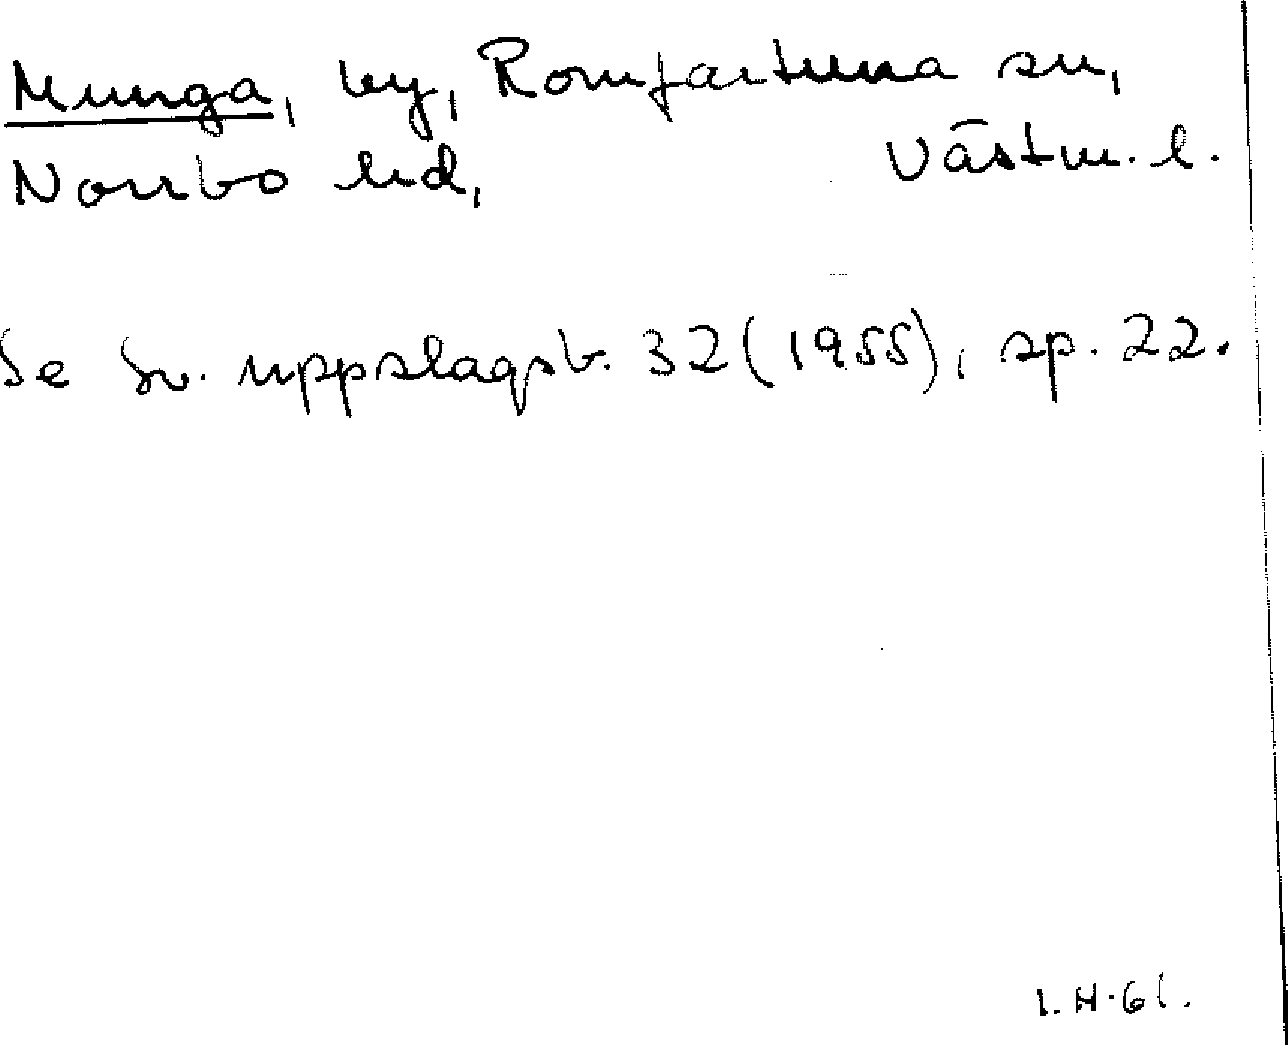 Munga, by, Romfartuna sn,
Norrbo hd, Västm. l.
Se Sv. uppslagsb. 32 (1955), sp. 22.
I. H. 61.